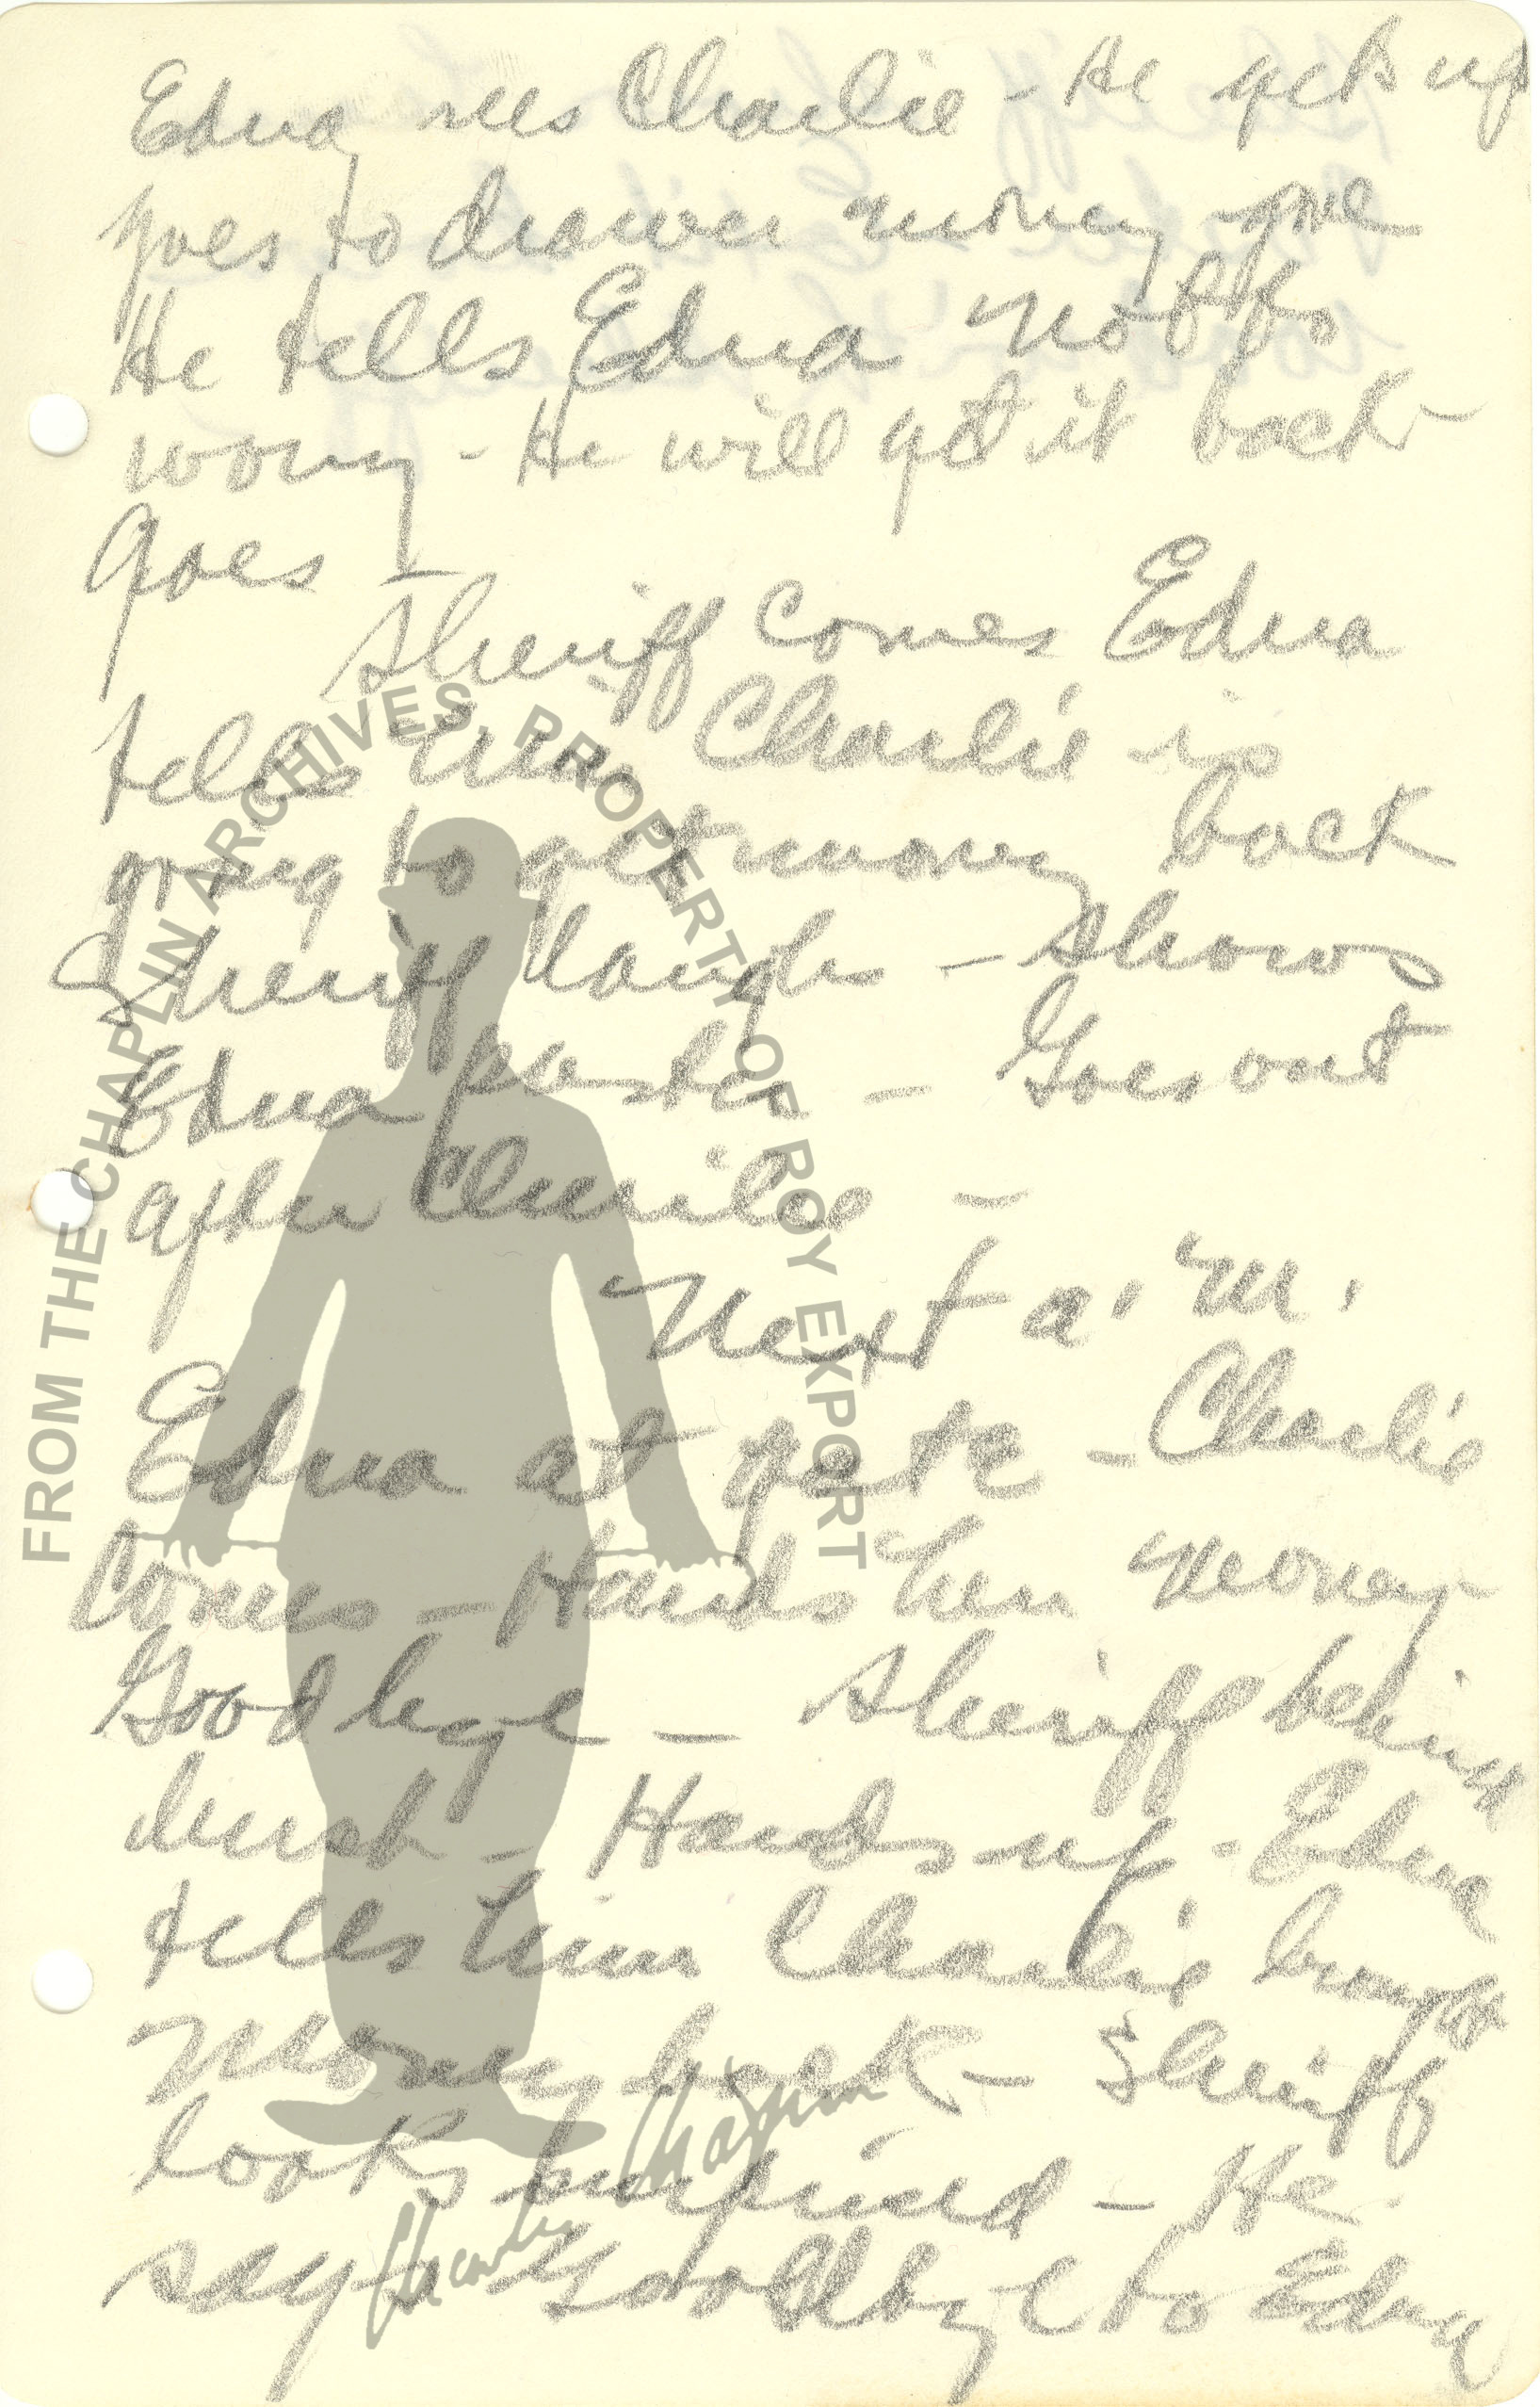 Edna sees Charlie - He gets up
goes to drawer money gone
He tells Edna not to
worry - He will get it back -
Goes -
Sheriff comes Edna
tells him Charlie is
going to get money back
Sheriff laughs - shows
Edna poster - Goes out
after Charlie -
Next a.m.
Edna at gate - Charlie
comes - Hands her money -
Good bye - Sheriff behind
bush - Hands up - Edna
tells him Charlie brought
money back - Sheriff
looks surprised - He
says Goodbye to Edna
FROM THE CHAPLIN ARCHIVES, PROPERTY OF ROY EXPORT
Charlie Chaplin